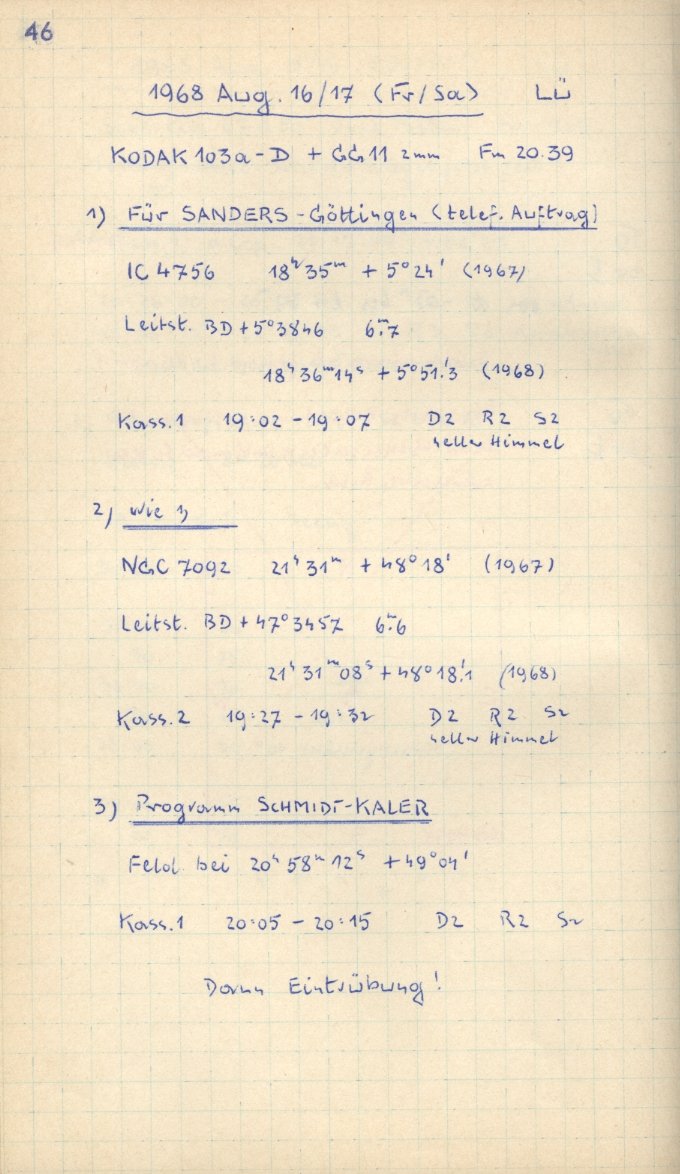 46
1968 Aug. 16/17 (Fr/Sa) LÜ
KODAK 103a-D + GG11 2mm Fm 20.39
1) Für SANDERS-Göttingen (telef. Auftrag)
IC 4756 18ʰ35ᵐ + 5°24' (1967)
Leitst. BD+5°3846 6ᵐ.7
18ʰ36ᵐ14ˢ + 5°51'.3 (1968)
Kass.1 19:02 - 19:07 D2 R2 S2
heller Himmel
2) wie 1)
NGC 7092 21ʰ31ᵐ + 48°18' (1967)
Leitst. BD+47°3457 6ᵐ.6
21ʰ31ᵐ08ˢ + 48°18'.1 (1968)
Kass.2 19:27 - 19:32 D2 R2 S2
heller Himmel
3) Programm SCHMIDT-KALER
Feld bei 20ʰ58ᵐ12ˢ +49°04'
Kass.1 20:05 - 20:15 D2 R2 S2
Dann Eintrübung!